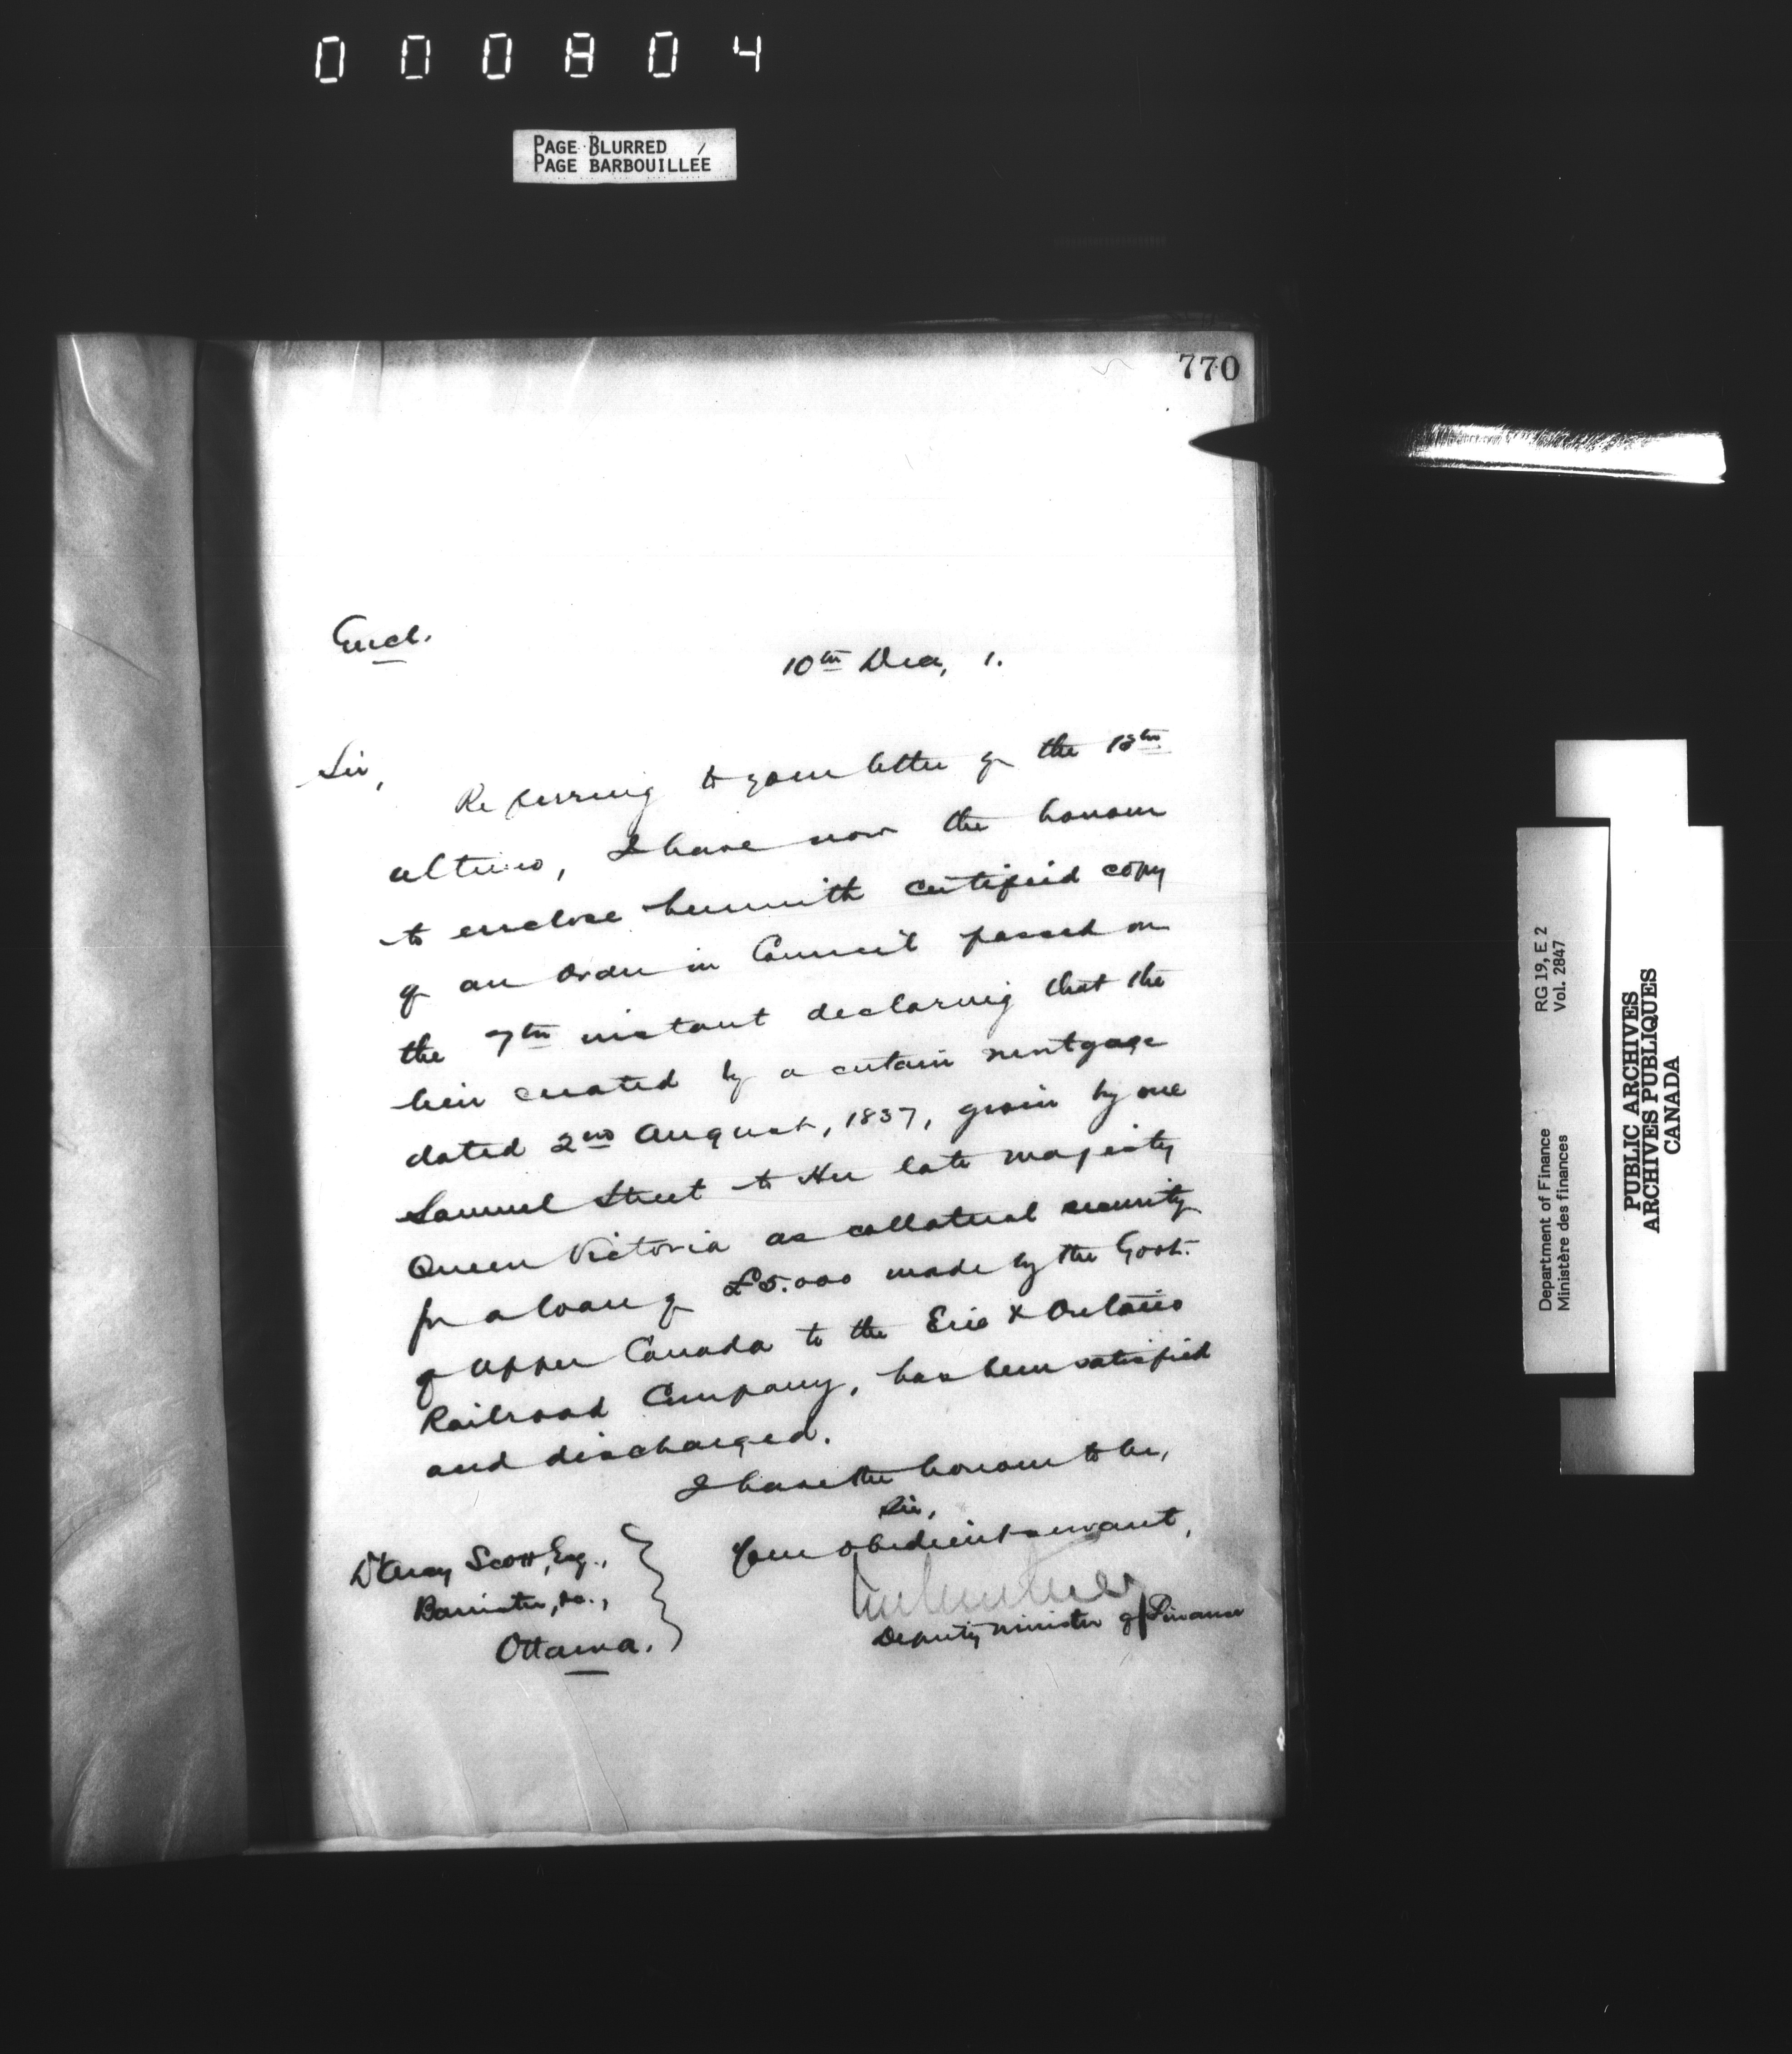 000804
PAGE BLURRED
PAGE BARBOUILLÉE
770
Encl.
10th Dec, 1.
Sir,
Referring to your letter of the 13th
ultimo, I have now the honour
to enclose herewith certified copy
of an Order in Council passed on
the 7th instant declaring that the
lien created by a certain mortgage
dated 2nd August, 1837, given by one
Samuel Street to Her late majesty
Queen Victoria as collateral security
for a loan of £5.000 made by the Govt.
of Upper Canada to the Erie & Ontario
Railroad Company, has been satisfied
and discharged.
I have the honour to be,
Sir,
Your obedient servant,
Deputy Minister of Finance
D'Arcy Scott, Esq.,
Barrister, &c.,
Ottawa.
RG 19, E 2
Vol. 2847
Department of Finance
Ministère des finances
PUBLIC ARCHIVES
ARCHIVES PUBLIQUES
CANADA